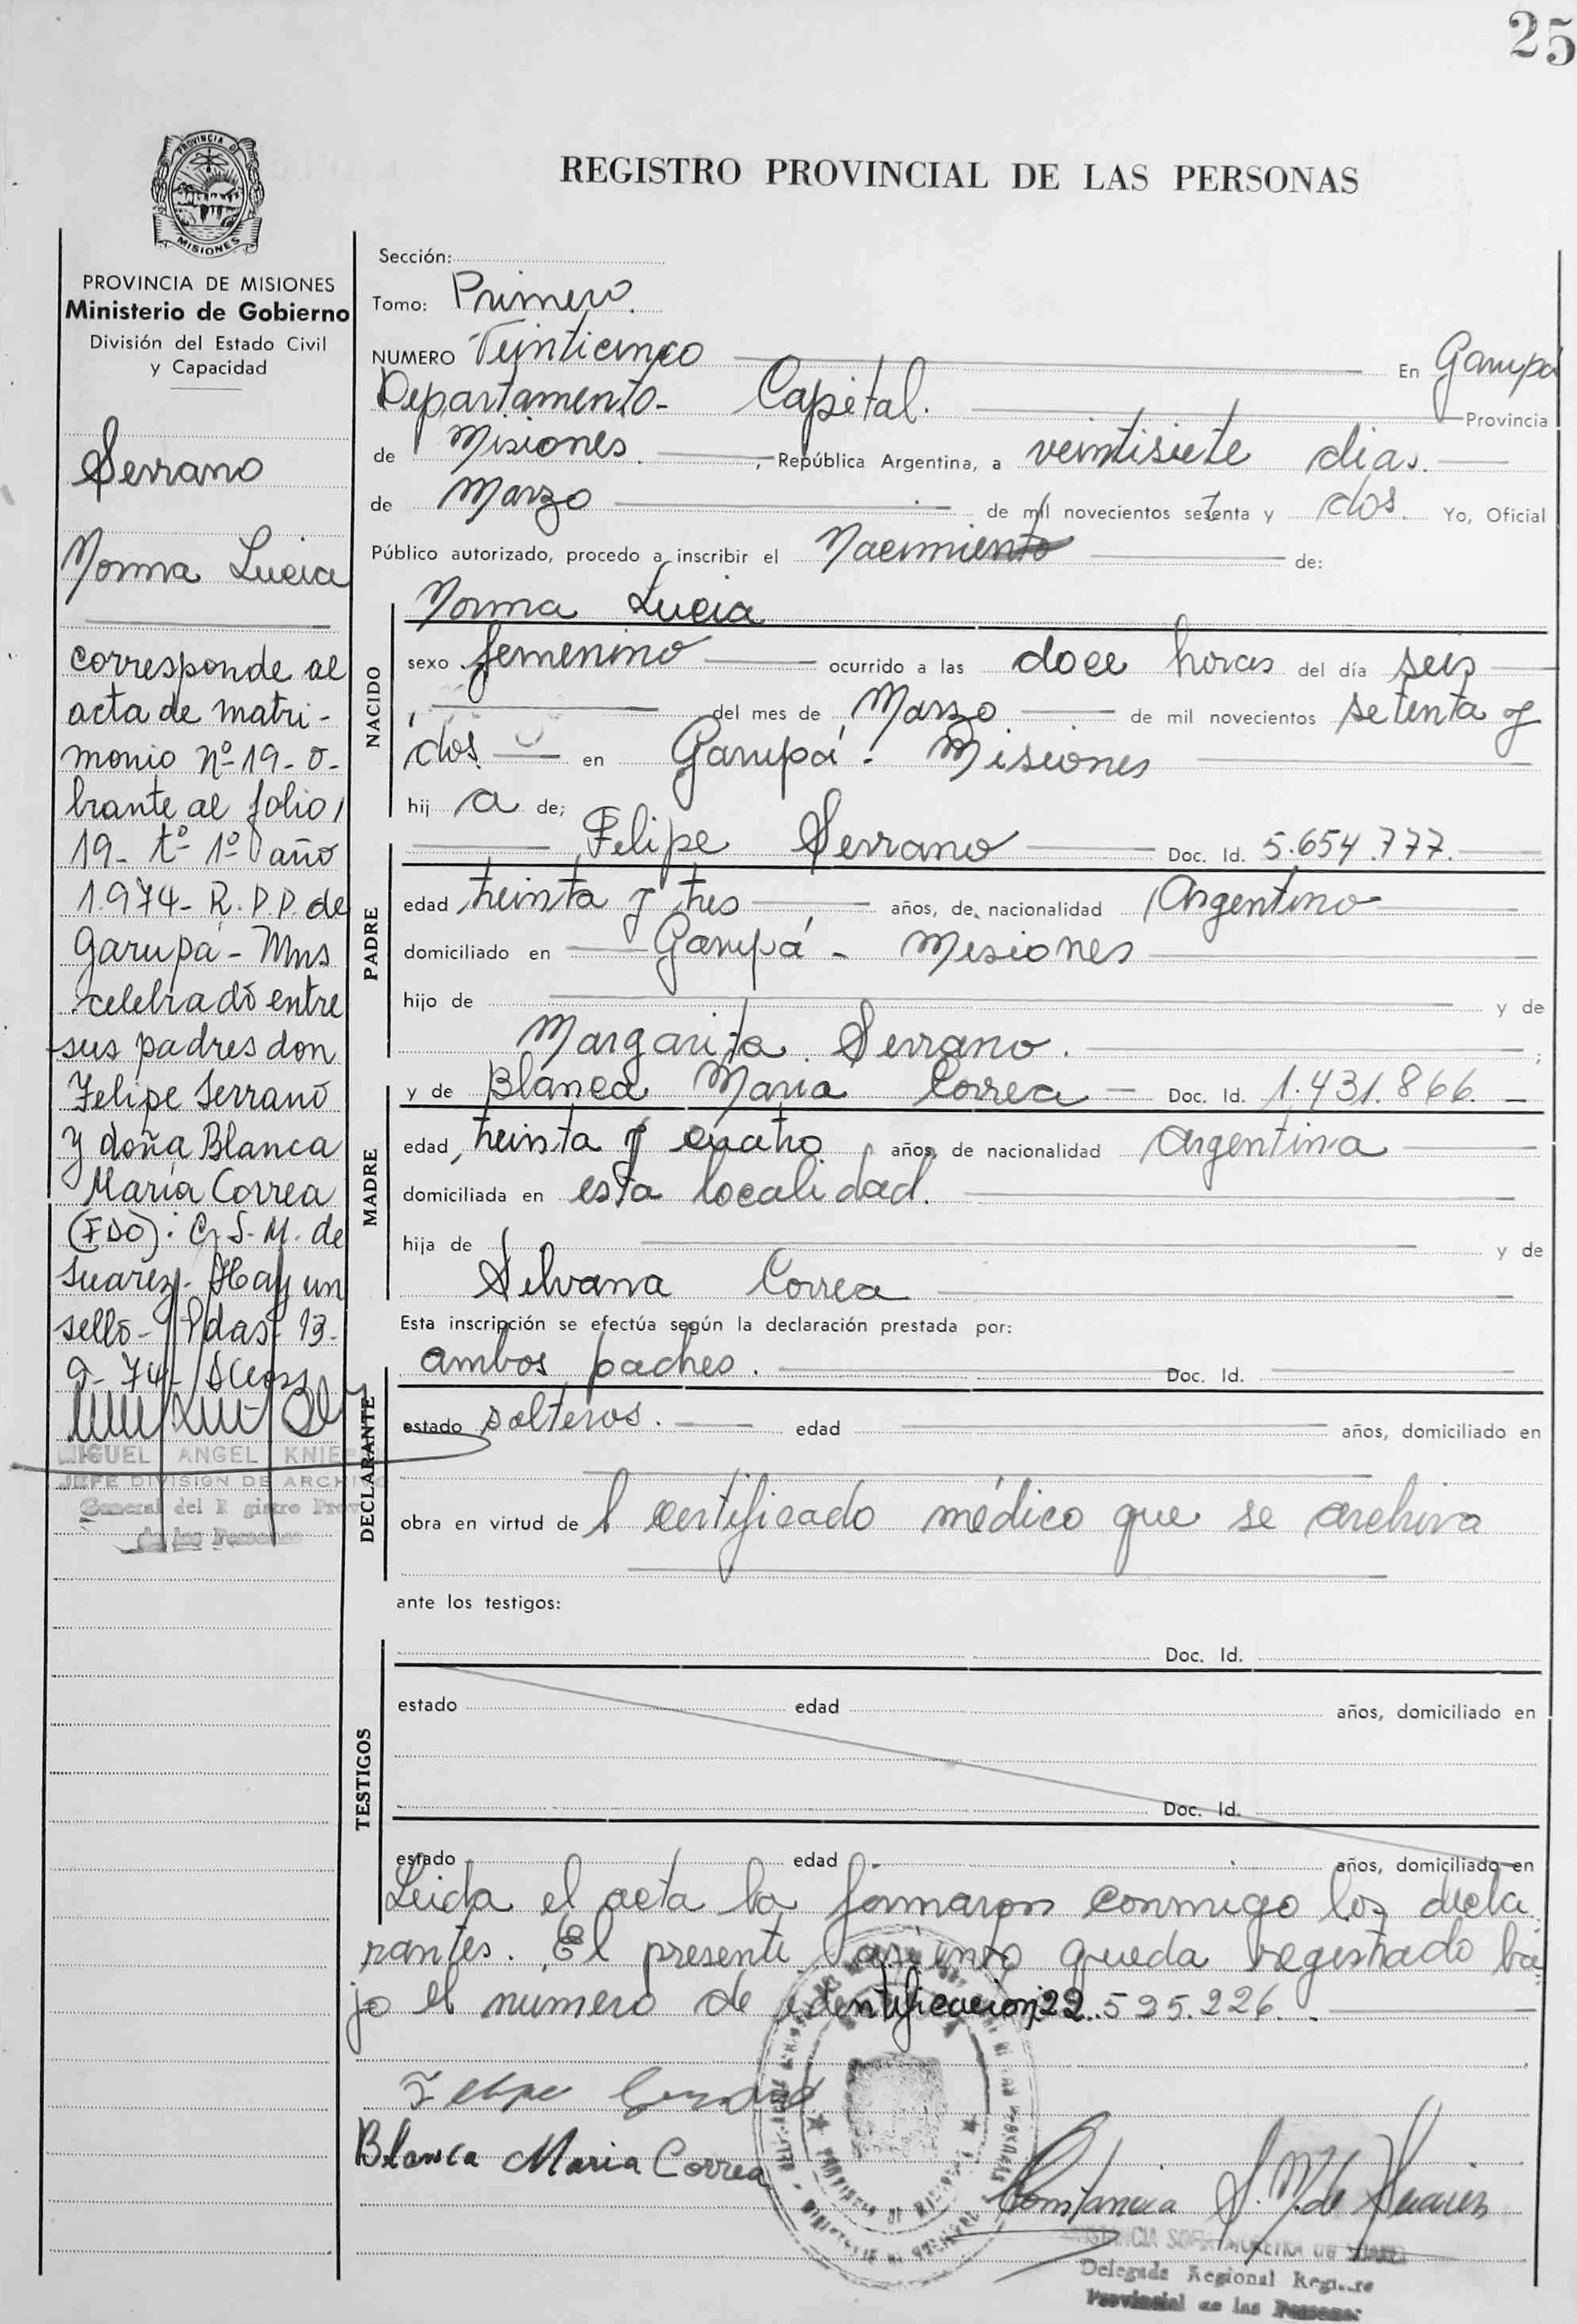 25
PROVINCIA DE
MISIONES
REGISTRO PROVINCIAL DE LAS PERSONAS
PROVINCIA DE MISIONES
Ministerio de Gobierno
División del Estado Civil
y Capacidad
Serrano
Norma Lucia
corresponde al
acta de matri-
monio nº 19-o-
brante al folio
19- tº 1º año
1974- R.P.P. de
Garupá - Mns
celebrado entre
sus padres don
Felipe Serrano
y doña Blanca
María Correa
(FDO): C. S. M. de
Suarez - Hay un
sello - Pdas 13-
9-74-
MIGUEL ANGEL
JEFE DIVISION DE ARCHI
General del R gistro Prov
de las Personas
Sección:
Tomo: Primero.
NUMERO Veinticinco En Garupá
Departamento- Capital. Provincia
de Misiones. , República Argentina, a veintisiete dias.
de Marzo de mil novecientos setenta y dos. Yo, Oficial
Público autorizado, procedo a inscribir el Nacimiento de:
NACIDO
Norma Lucia
sexo femenino ocurrido a las doce horas del día seis
del mes de Marzo de mil novecientos setenta y
dos en Garupá - Misiones
hij a de;
PADRE
Felipe Serrano Doc. Id. 5.654.777.
edad treinta y tres años, de nacionalidad Argentino
domiciliado en Garupá - Misiones
hijo de y de
Margarita Serrano. ;
MADRE
y de Blanca Maria Correa Doc. Id. 1.431.866.
edad, treinta y cuatro años, de nacionalidad Argentina
domiciliada en esta localidad.
hija de y de
Silvana Correa
Esta inscripción se efectúa según la declaración prestada por:
DECLARANTE
ambos padres. Doc. Id.
estado solteros. edad años, domiciliado en
obra en virtud de l certificado médico que se archiva
ante los testigos:
TESTIGOS
Doc. Id.
estado edad años, domiciliado en
Doc. Id.
estado edad años, domiciliado en
Leida el acta la firmaron conmigo los decla
rantes. El presente asiento queda registrado ba
jo el numero de identificacion 22.525.226.
Felipe Serrano
Blanca Maria Correa
Constancia S. M. de Suarez
Delegada Regional
Provincial de las Personas